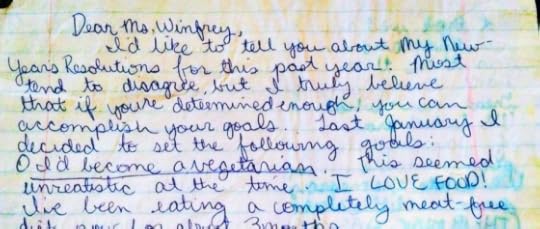 Dear Ms. Winfrey,
I'd like to tell you about my New-
Years Resolutions for this past year. Most
tend to disagree, but I truly believe
that if you're determined enough, you can
accomplish your goals. Last January I
decided to set the following goals:
I'd become a vegetarian. This seemed
unrealistic at the time. I LOVE FOOD!
I've been eating a completely meat-free
diet now for about 3 months